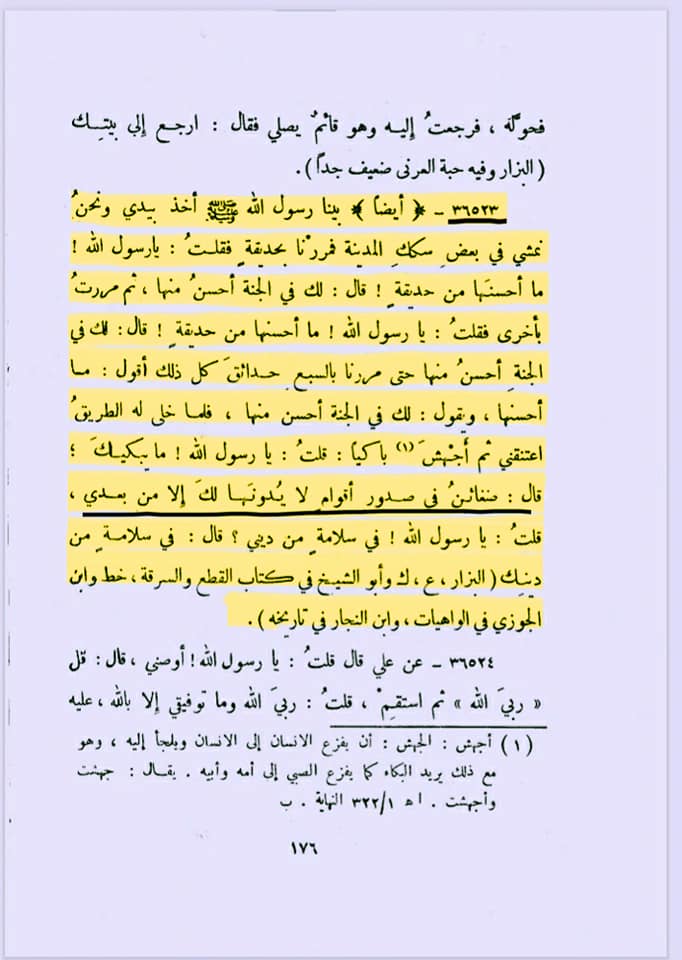 فحوله ، فرجعتُ إليه وهو قائمٌ يصلي فقال : ارجع إلى بيتِك
( البزار وفيه حبة العرنى ضعيف جداً ) .
٣٦٥٢٣ ـ ﴿ أيضاً ﴾ بينا رسول الله ﷺ أخذ بيدي ونحنُ
نمشي في بعضِ سككِ المدينة فمررْنا بحديقةٍ فقلتُ : يارسول الله !
ما أحسنَها من حديقةٍ ! قال : لك في الجنة أحسنُ منها ، ثم مررتُ
بأخرى فقلتُ : يا رسول الله ! ما أحسنها من حديقةٍ ! قال : لك في
الجنةِ أحسنُ منها حتى مررنا بالسبعِ حدائقَ كل ذلك أقول : ما
أحسنها ، ويقول : لك في الجنة أحسن منها ، فلما خلى له الطريقُ
اعتنقني ثم أَجْهشَ (١) باكياً : قلتُ : يا رسول الله ! ما يبكيكَ ؛
قال : ضغائنُ في صدور أقوامٍ لا يُبدونَها لكَ إلا من بعدي ،
قلتُ : يا رسول الله ! في سلامةٍ من ديني ؟ قال : في سلامةٍ من
دينِك ( البزار ، ع ، ك وأبو الشيخ في كتاب القطع والسرقة ، خط وابن
الجوزي في الواهيات ، وابن النجار في تاريخه ) .
٣٦٥٢٤ ـ عن علي قال قلتُ : يا رسول الله ! أوصني ، قال : قل
« ربيَ الله » ثم استقمْ ، قلتُ : ربيَ الله وما توفيقي إلا بالله ، عليه
( ١ ) أجهش : الجهش : أن يفزع الانسان إلى الانسان ويلجأ إليه ، وهو
مع ذلك يريد البكاء كما يفزع الصبي إلى أمه وأبيه . يقال : جهشت
وأجهشت . اﻫ ٣٢٢/١ النهاية . ب
١٧٦